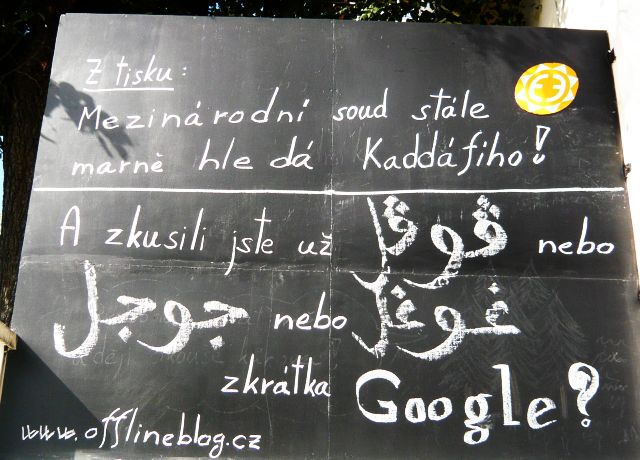 Z tisku:
Mezinárodní soud stále
marně hledá Kaddáfího!
A zkusili jste už قوقل nebo
جوجل nebo غوغل
zkrátka Google?
www.offlineblog.cz